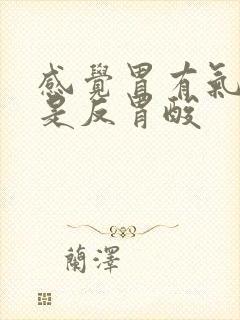 感覺胃有氣
是反胃酸
蘭澤